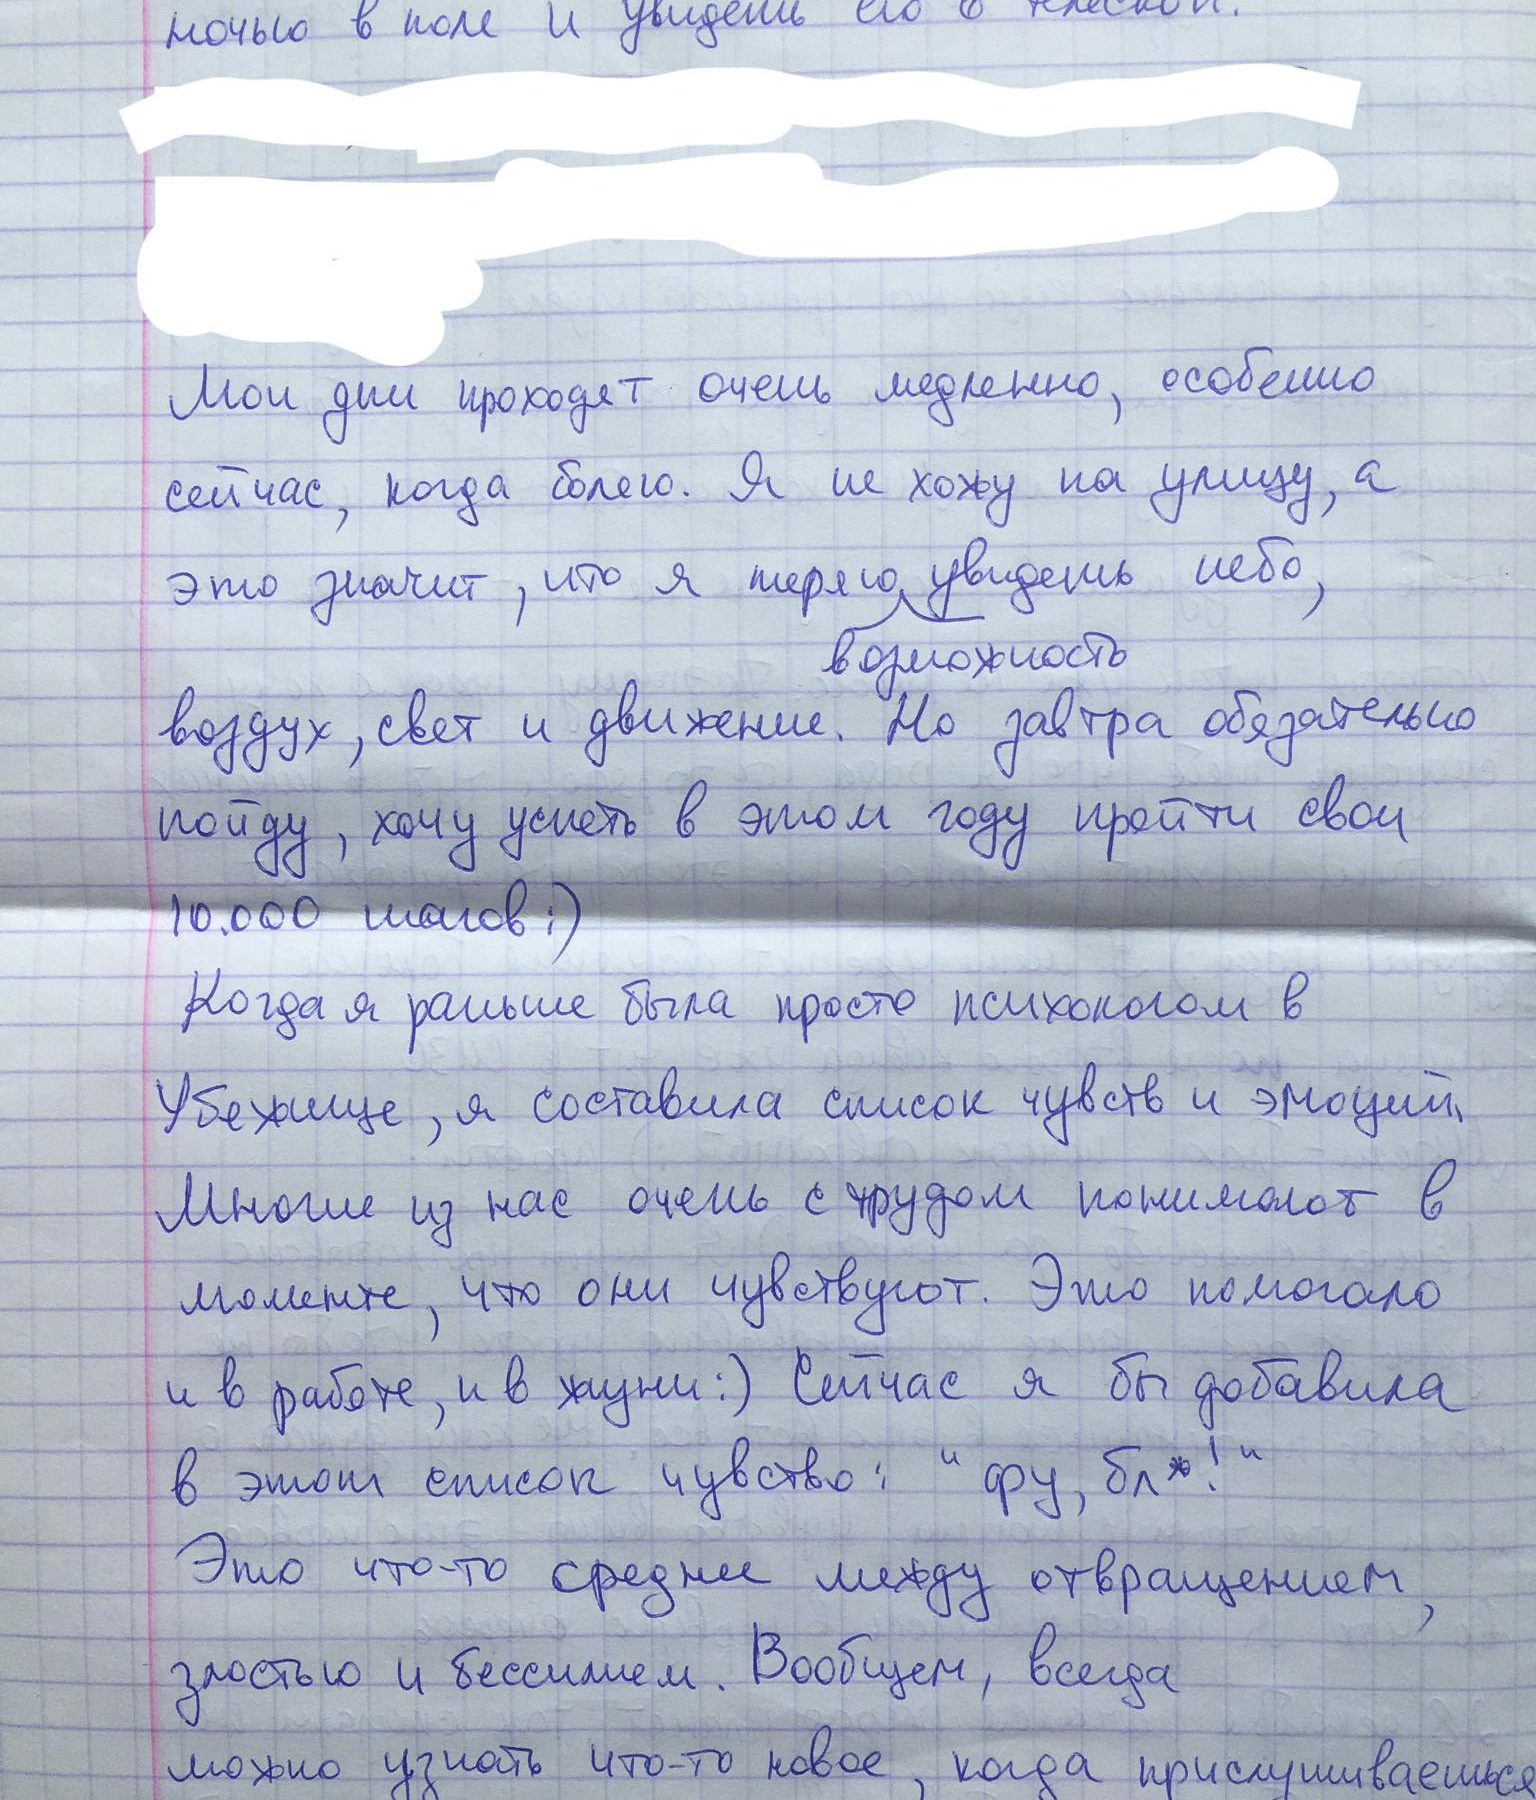 ночью в поле и увидеть его в
Мои дни проходят очень медленно, особенно
сейчас, когда болею. Я не хожу на улицу, а
это значит, что я теряю увидеть небо,
возможность
воздух, свет и движение. Но завтра обязательно
пойду, хочу успеть в этом году пройти свои
10.000 шагов :)
Когда я раньше была просто психологом в
Убежище, я составила список чувств и эмоций.
Многие из нас очень с трудом понимают в
моменте, что они чувствуют. Это помогало
и в работе, и в жизни :) Сейчас я бы добавила
в этот список чувство: "фу, бл*!"
Это что-то среднее между отвращением,
злостью и бессилием. Вообщем, всегда
можно узнать что-то новое, когда прислушиваешься